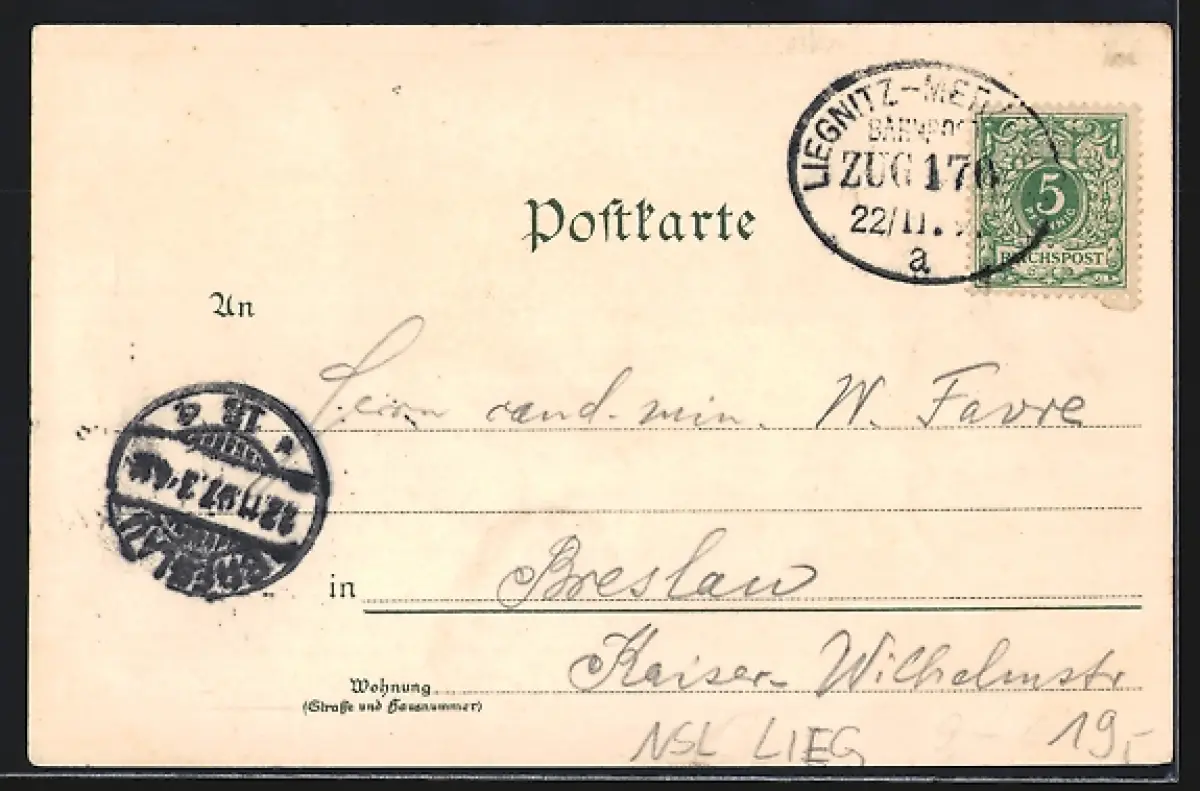 LIEGNITZ-MER
BAHNPOST
ZUG 170
22/11.
a
5
PFENNIG
REICHSPOST
Postkarte
An
Herrn cand. min. W. Favre
BRESLAU
22.11.97.
in Breslau
Kaiser-Wilhelmstr
Wohnung
(Straße und Hausnummer)
NSL LIEG 19,-